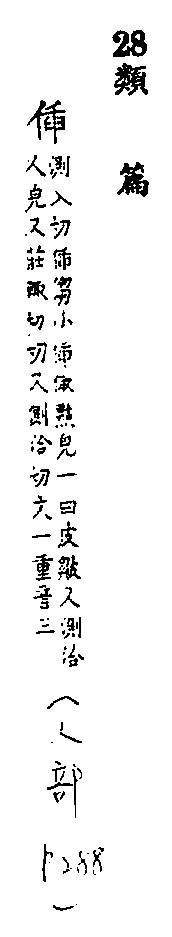 28 類 篇
偛
測入切偛㑳小偛偢 皃一曰皮皺又測洽
人皃又莊 切切又測洽切文一重音三
（人部 P288）